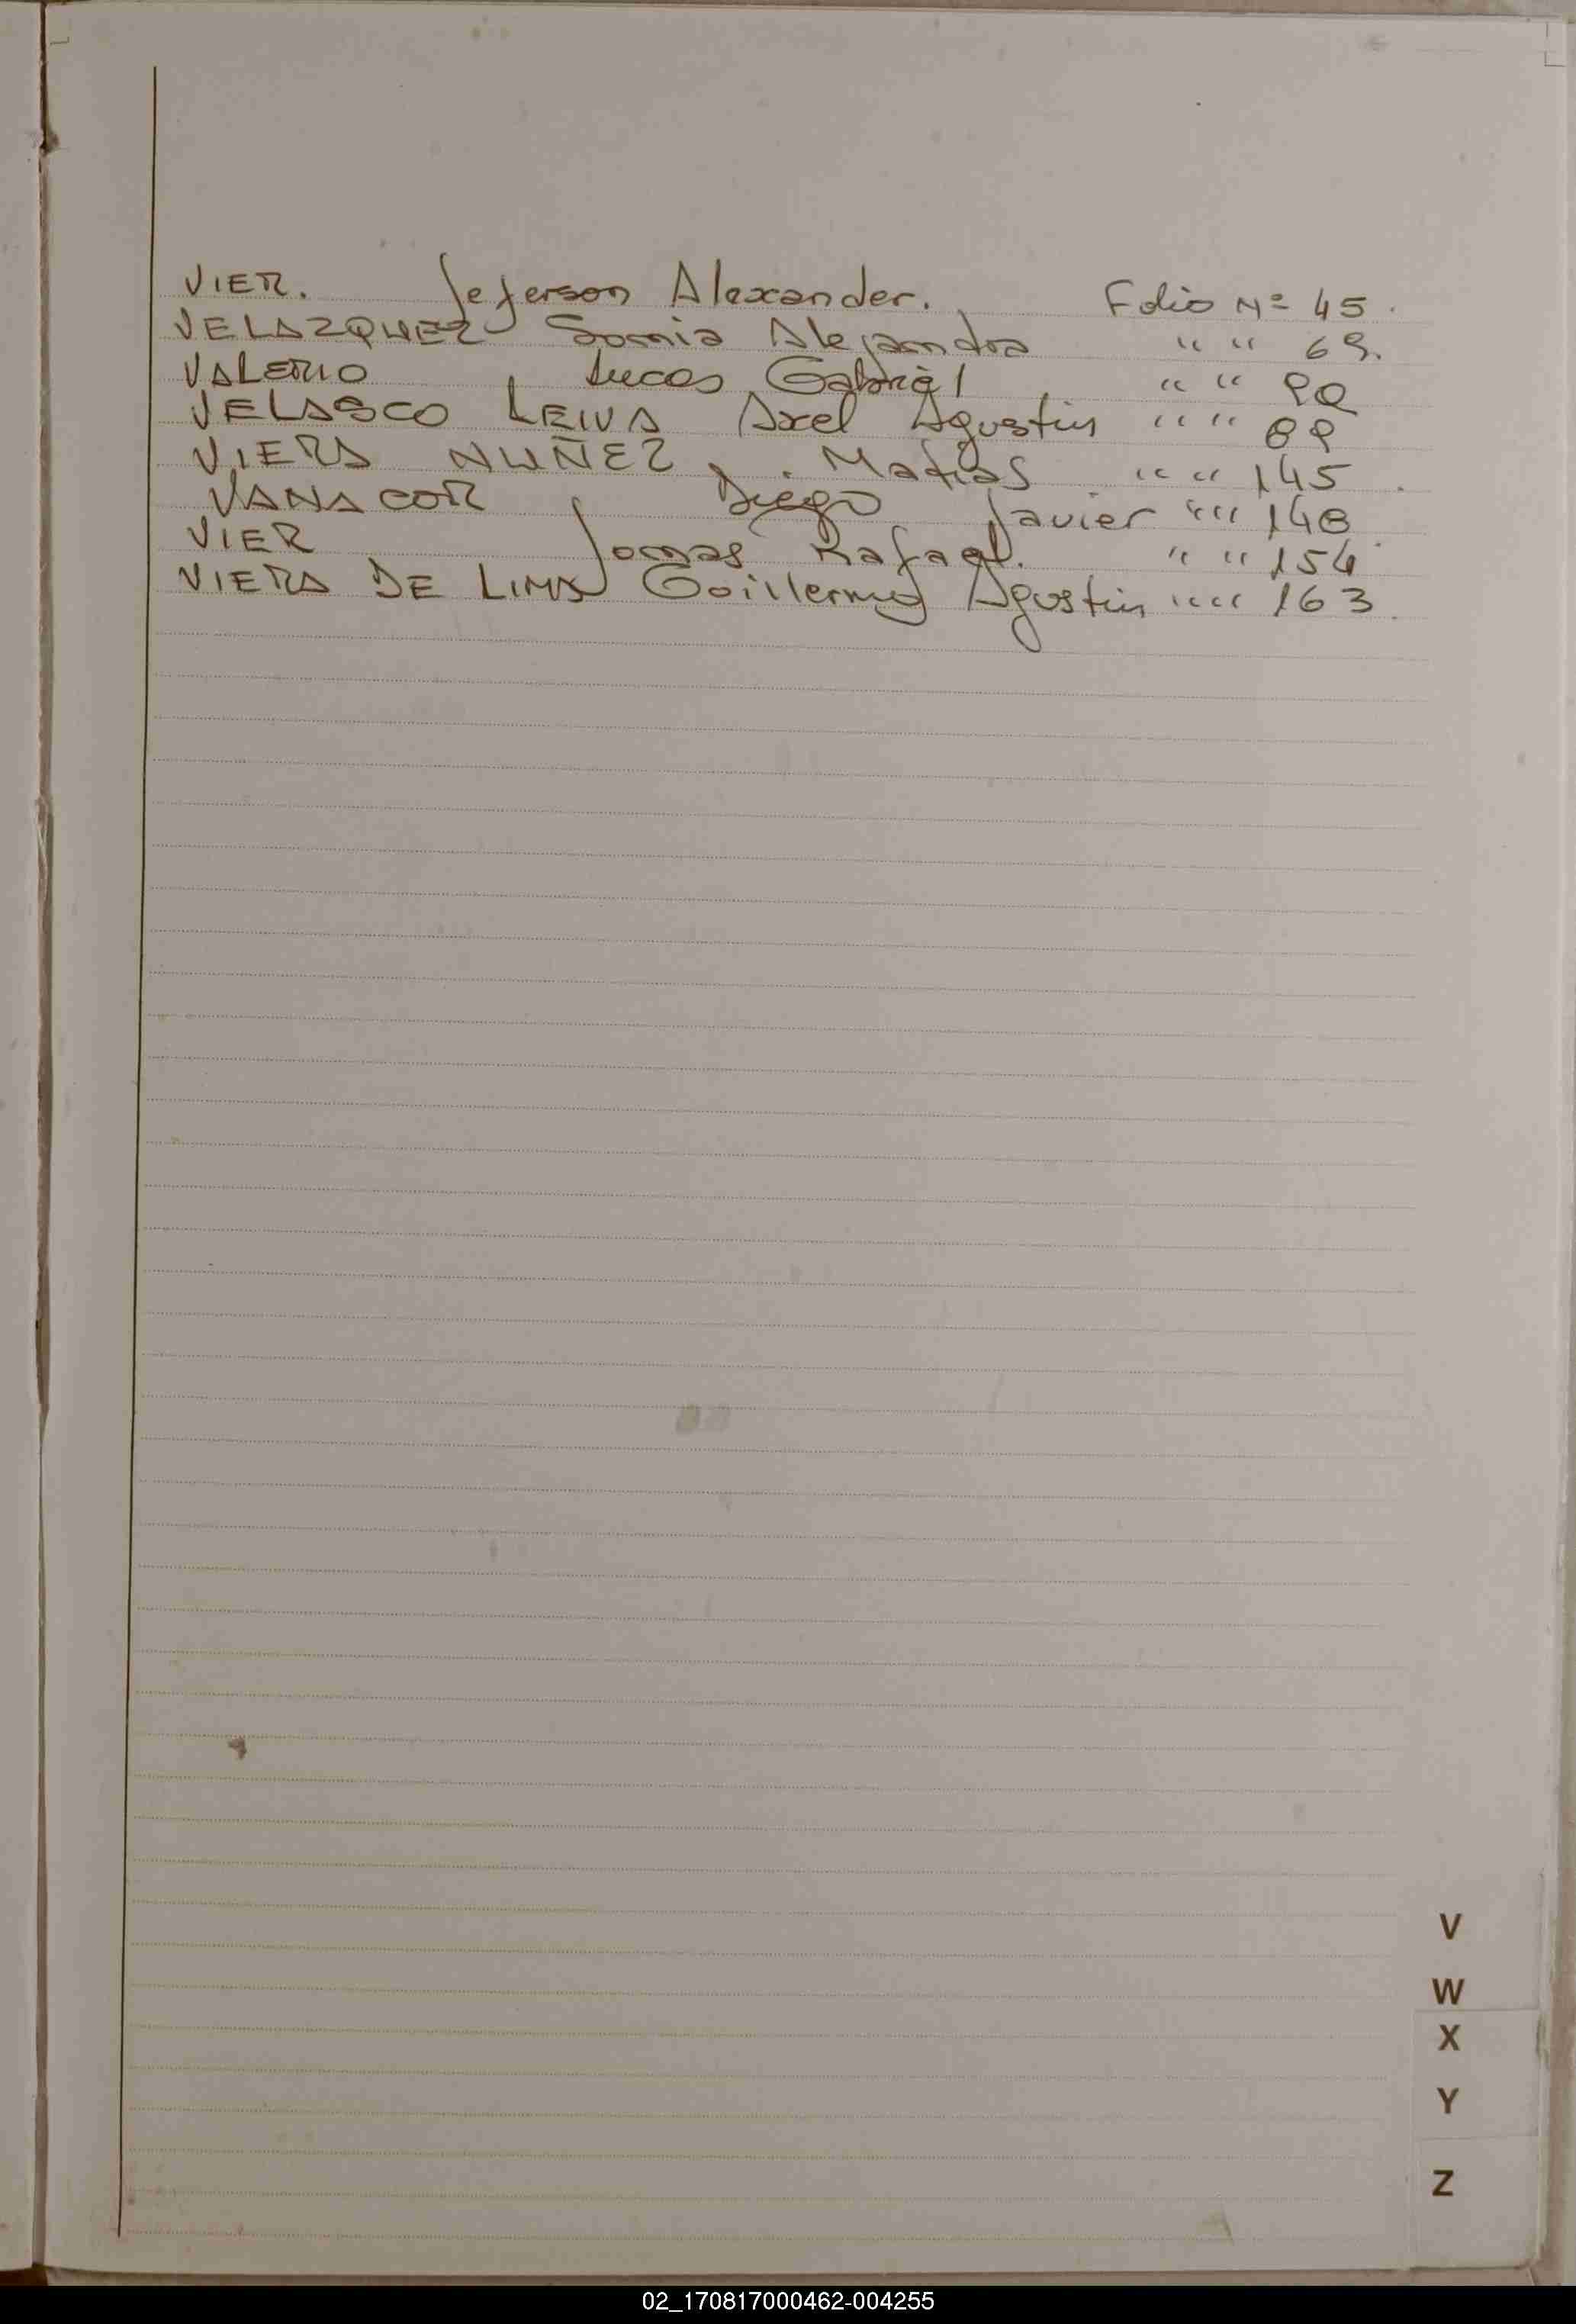 VIER. Jeferson Alexander. Folio Nº 45.
VELAZQUEZ Sonia Alejandra " " 69.
VALERIO Lucas Gabriel " "
VELASCO LEIVA Axel Agustin " " 89
VIERA NUÑEZ. Matias " " 145.
VANACOR Diego Javier " " 148
VIER Jonas Rafael. " " 154
VIERA DE LIMA Guillermo Agustin " " 163.
V
W
X
Y
Z
02_170817000462-004255